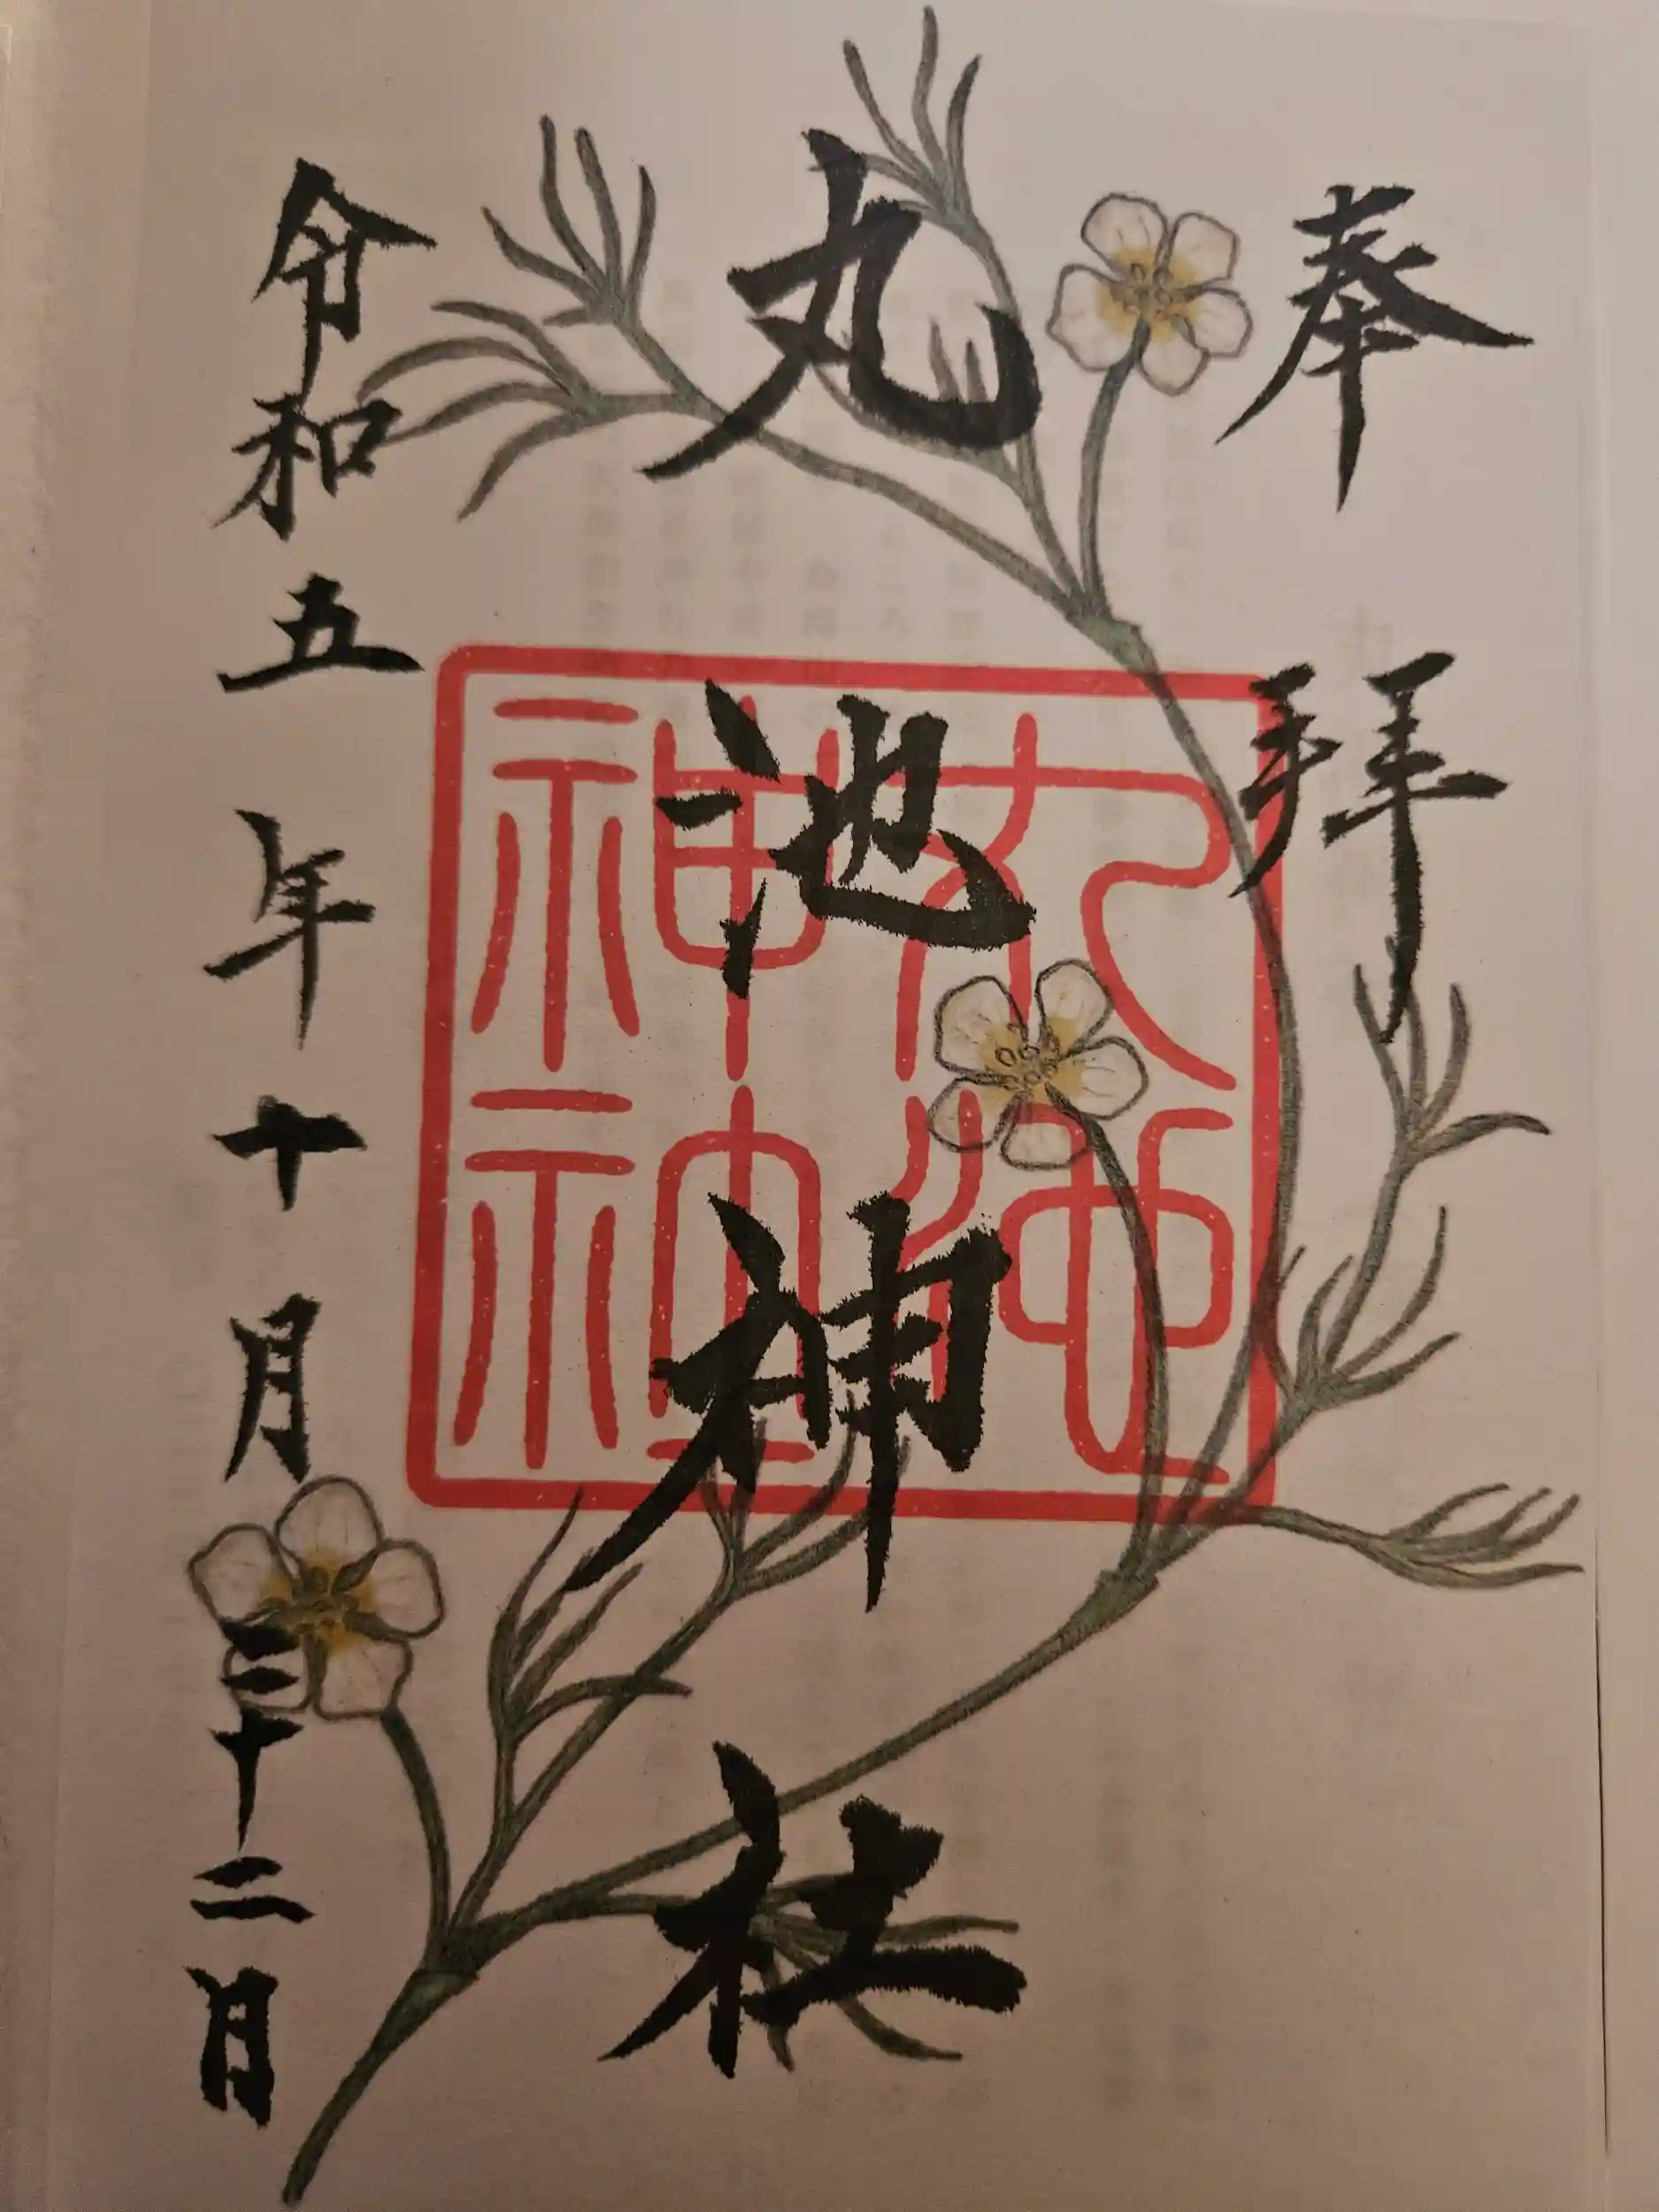 奉拝
丸池神社
令和五年十月二十二日
丸池
神社